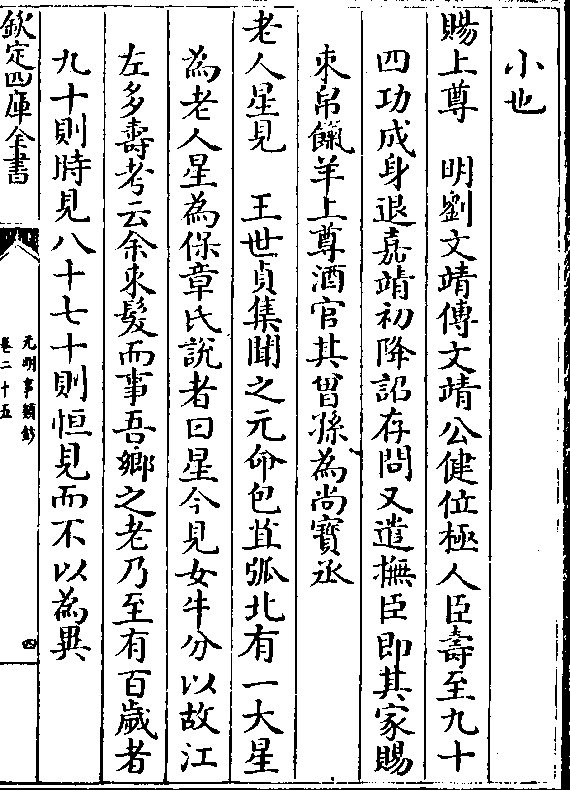 小也
賜上尊　明劉文靖傳文靖公健位極人臣壽至九十
四功成身退嘉靖初降詔存問又遣撫臣即其家賜
束帛餼羊上尊酒官其曾孫為尚寳丞
老人星見　王世貞集聞之元命包直弧北有一大星
為老人星為保章氏說者曰星今見女牛分以故江
左多壽考云余束髮而事吾鄉之老乃至有百歲者
九十則時見八十七十則恒見而不以為異
欽定四庫全書
元明事類鈔
卷二十五
四